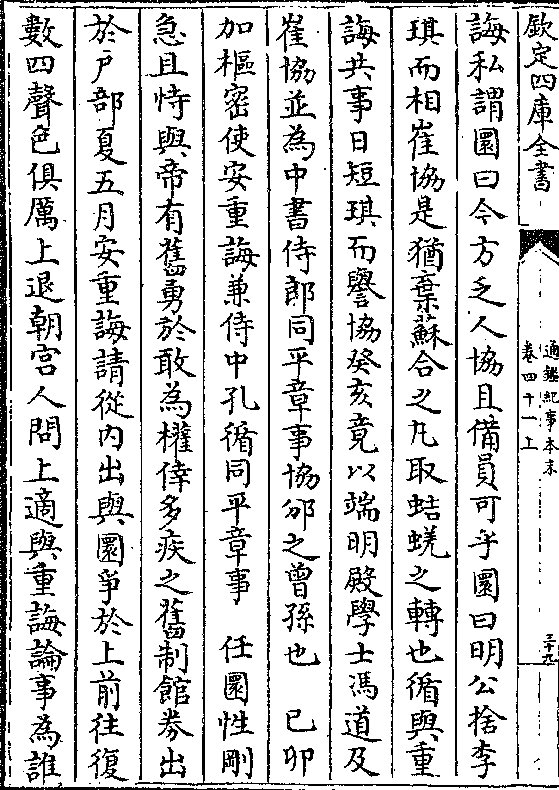 欽定四庫全書
通鑑紀事本末
卷四十一上
三十九
誨私謂圜曰今方乏人協且備員可乎圜曰明公捨李
琪而相崔協是猶棄蘇合之丸取蛣蜣之轉也循與重
誨共事日短琪而譽協癸亥竟以端明殿學士馮道及
崔協並為中書侍郎同平章事協邠之曾孫也　己卯
加樞密使安重誨兼侍中孔循同平章事　任圜性剛
急且恃與帝有舊勇於敢為權倖多疾之舊制館券出
於户部夏五月安重誨請從内出與圜爭於上前往復
數四聲色俱厲上退朝宫人問上適與重誨論事為誰